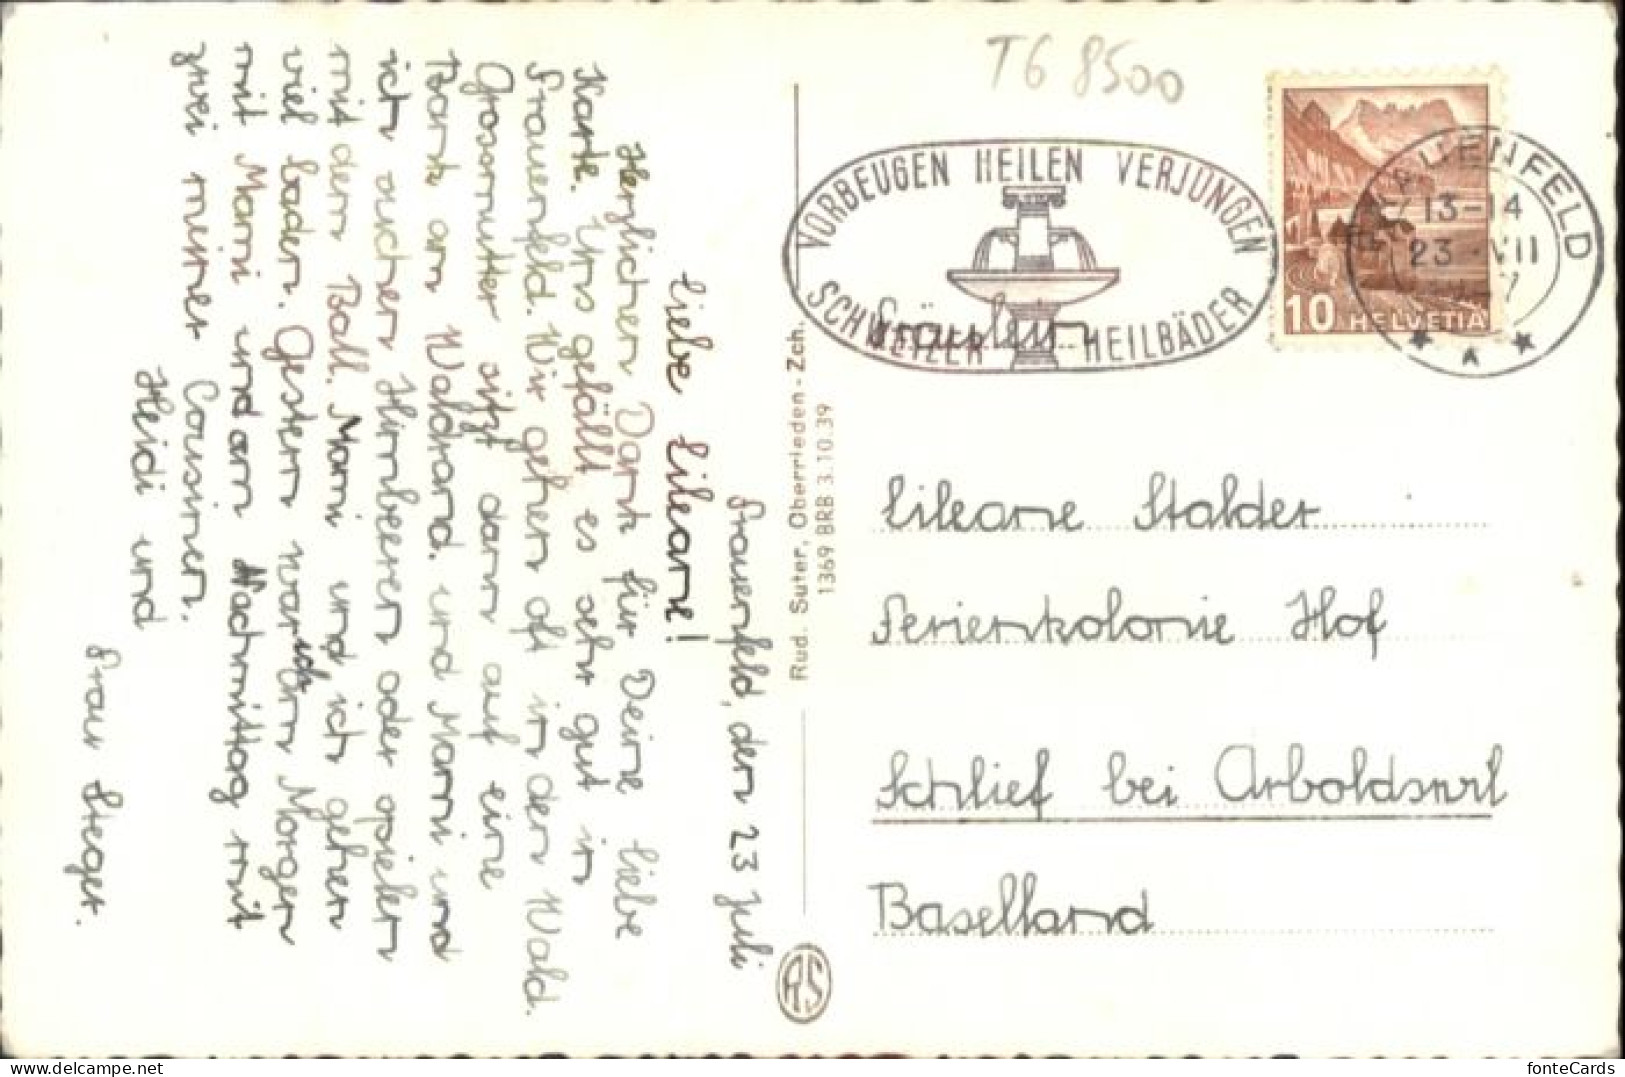 T6 8500
VORBEUGEN HEILEN VERJÜNGEN
SCHWEIZER HEILBÄDER
FRAUENFELD
13-14
23. VII
10 HELVETIA
Fräulein
Lileane Stalder
Ferienkolonie Hof
Schlief bei Arboldswil
Baselland
Rud. Suter, Oberrieden - Zch.
1369 BRB 3.10.39
RS
Frauenfeld, den 23 Juli
Liebe Lileane!
Herzlichen Dank für Deine liebe
Karte. Uns gefällt es sehr gut in
Frauenfeld. Wir gehen oft in den Wald.
Grossmutter sitzt dann auf eine
Bank am Waldrand. und Mami und
ich suchen Himberren oder spielen
mit dem Ball. Mami und ich gehen
viel baden. Gestern war ich am Morgen
mit Mami und am Nachmittag mit
zwei meiner Cousinen.
Heidi und
Frau Steger.
fonteCards